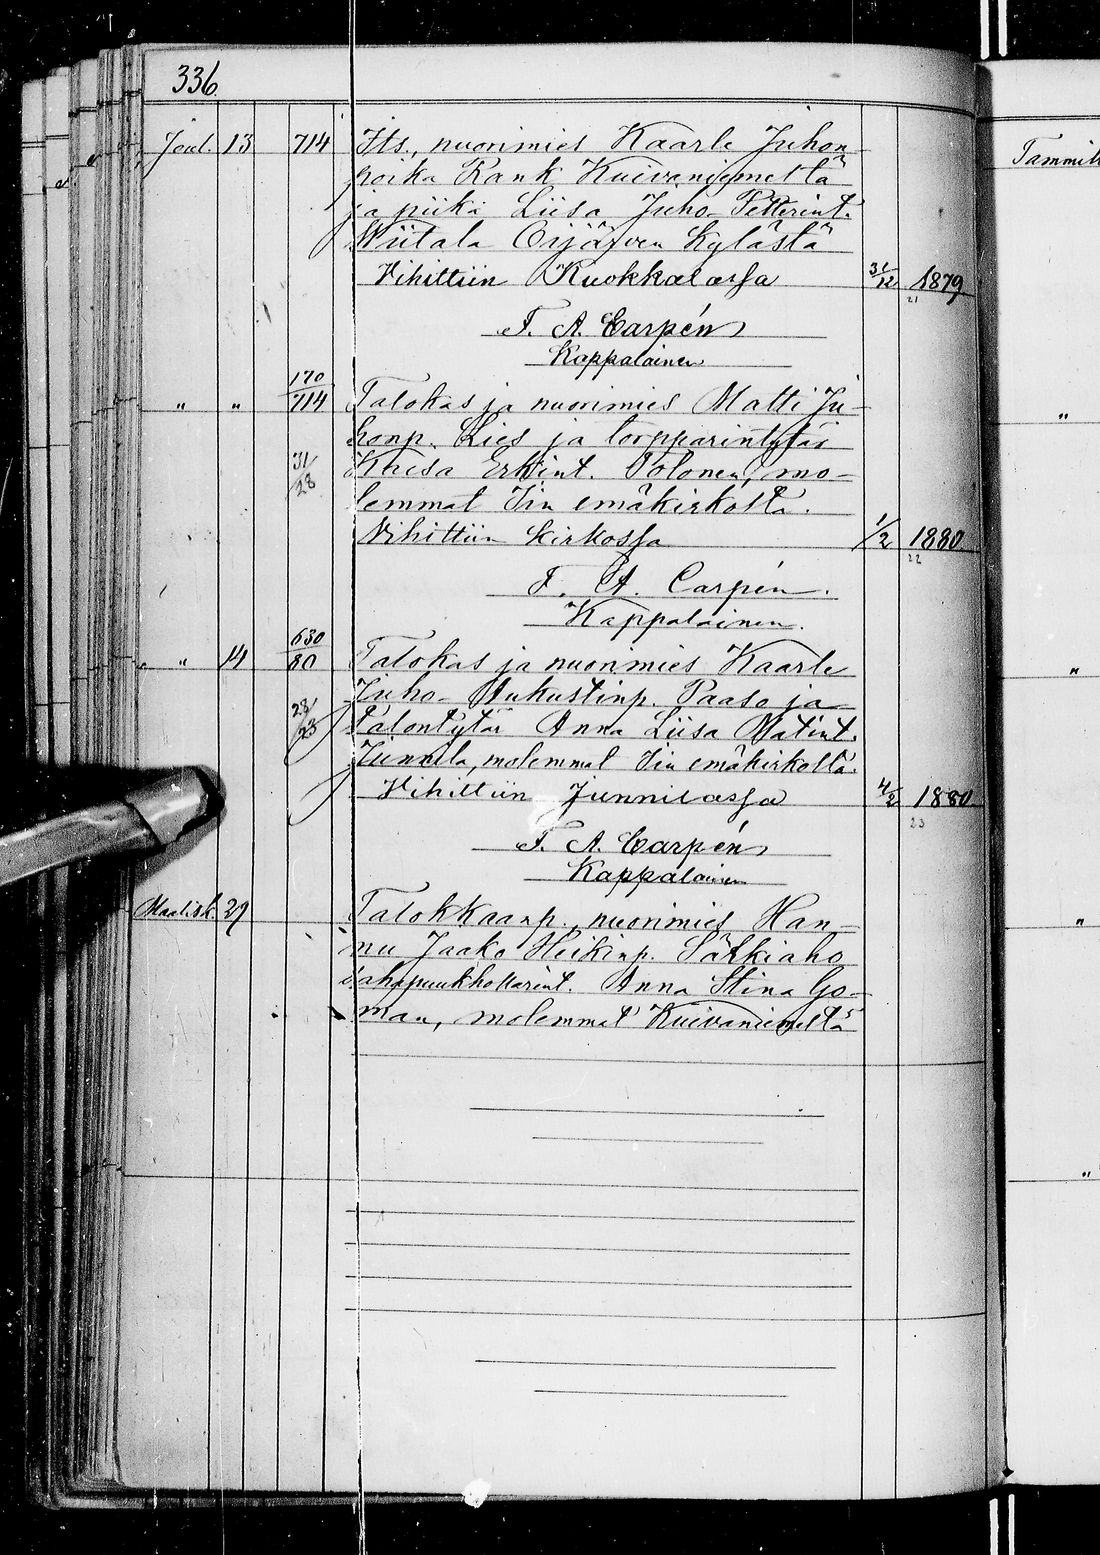 336
Joul. 13 714 Its., nuorimies Kaarle Juhon
poika Rank Kuivaniemeltä
ja piika Liisa Juho Petterint.
Wiitala Oijärven kylästä
Vihittiin Kuokkalassa 31/12 1879
21
F. A. Carpén
Kappalainen
" " 170/714 Talokas ja nuorimies Matti Ju-
honp. Lies ja torpparintytär
31/28 Kaisa Erkint. Tolonen, mo-
lemmat Iin emäkirkolta.
Vihittiin kirkossa 1/2 1880
22
F. A. Carpén.
Kappalainen.
" 14 630/80 Talokas ja nuorimies Kaarle
Juho Aukustinp. Paaso ja
28/23 Talontytär Anna Liisa Matint.
Junnila, molemmat Iin emäkirkolta.
Vihittiin Junnilassa 4/2 1880
23
F. A. Carpén
Kappalainen
Maalisk. 29 Talokkaanp. nuorimies Han-
nu Jaako Heikinp. Särkiaho
Anna Stina Go-
man, molemmat Kuivaniemeltä
Tammik
"
"
"
"